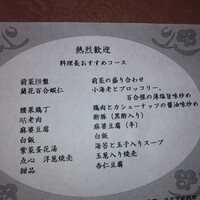 熱烈歓迎
料理長おすすめコース
前菜拼盤 前菜の盛り合わせ
蘭花百合蝦仁 小海老とブロッコリー、
百合根の薄塩旨味炒め
腰果鶏丁 鶏肉とカシューナッツの醤油味炒め
咕老肉 酢豚(黒酢入り)
麻婆豆腐 麻婆豆腐(辛)
白飯 白飯
紫菜蛋花湯 海苔と玉子入りスープ
点心 洋葱焼売 玉葱入り焼売
甜品 杏仁豆腐